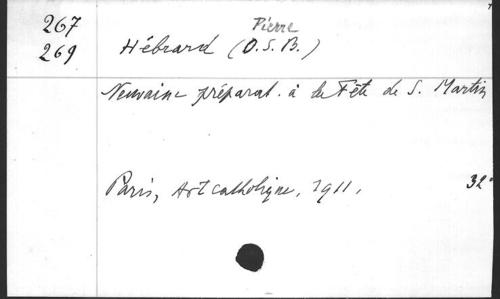 267
Pierre
269 Hébrard (O.S.B.)
Neuvaine préparat. à la Fête de S. Martin
Paris, Art catholique, 1911, 32°